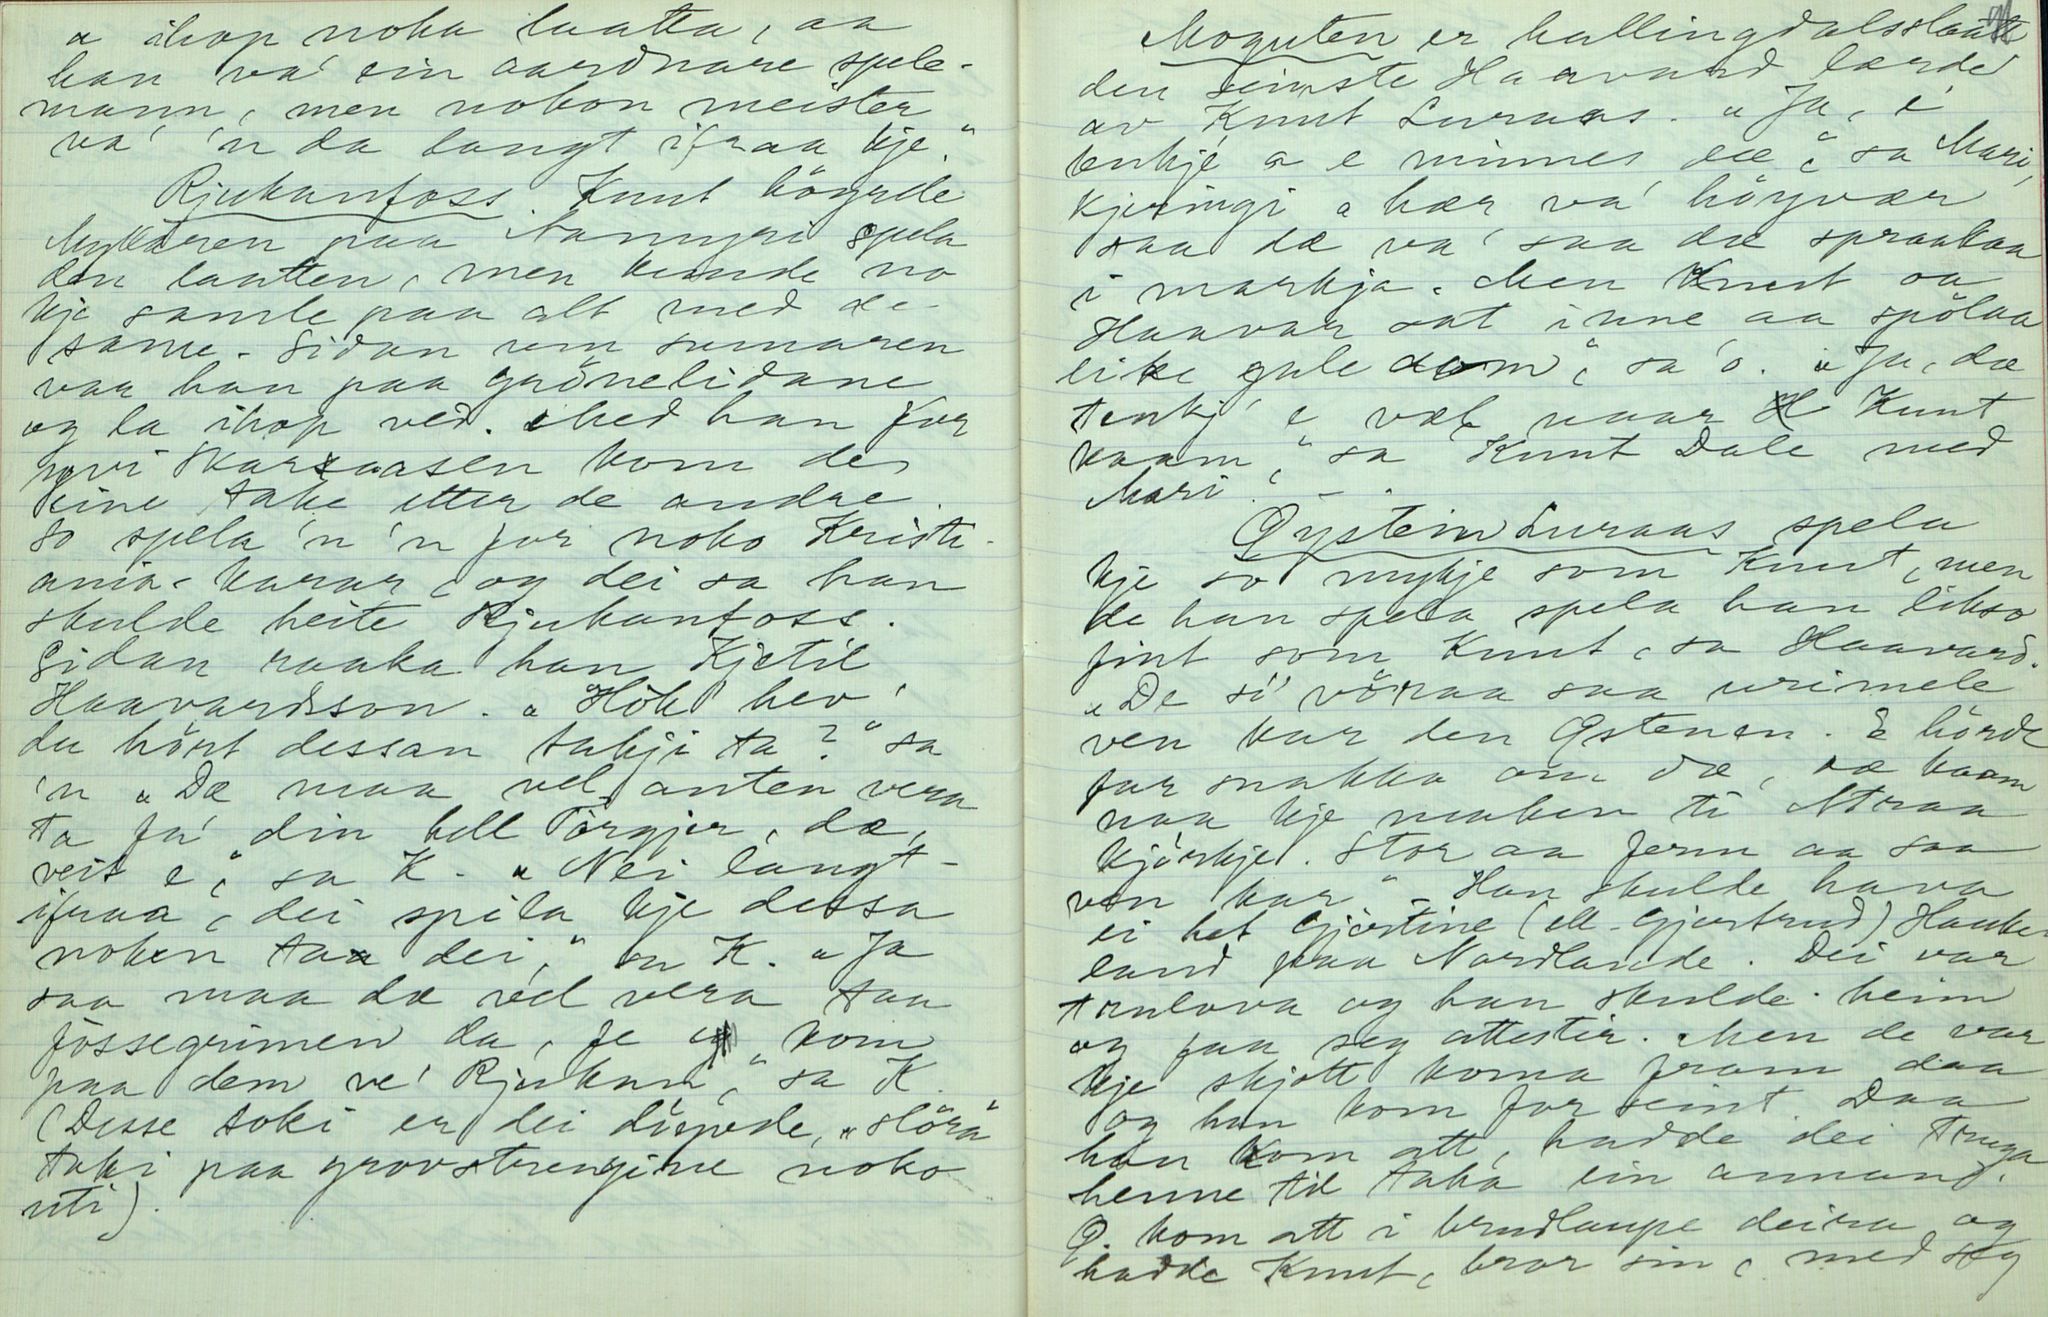 a ihop noka laatta, aa
han va' ein aardnare spele-
mann, men nokon meister
va' 'n da langt ifraa kje."
Rjukanfoss. Knut höyrde
Myllaren paa Namnyri spela
den laatten, men kunde no
kje samle paa alt med de
same. Sidan um sumaren
var han paa Grönelidane
og la ihop ved. Med han for
yvi Skarsaasen kom de
eine take etter de andre.
So spela 'n 'n for noko Kristi-
ania-karar, og dei sa han
skulde heite Rjukanfoss.
Sidan raaka han Kjetil
Haavardsson. "Hök hev'
du hört dessan takji ta?" sa
'n "Dæ maa vel anten vera
ta fa' din hell Törgjer, dæ,
veit e", sa K. "Nei langt-
ifraa, dei spila kje dessa
noken taa dei," sa K. "Ja
saa maa dæ vel vera taa
fössegrimen da, fe e kom
paa dem ve' Rjukan," sa K.
(Desse toki er dei djupede, "störa"
taki paa grovstrengine noko
uti).
Moguten er hallingdalsslaatt
den seinste Haavard lærde
av Knut Luraas. "Ja, e
tenkje a e minnes dæ", sa Mari,
kjeringi "hær va' höyvær
saa dæ va' saa dæ spraakaa
i markja. Men Knut aa
Haavar sat inne aa spölaa
like gale dom", sa 'o. "Ja, dæ
tenkj' e væl naar Knut
kaam," sa Knut Dale med
Mari. –
Öystein Luraas spela
kje so mykje som Knut, men
de han spela spela han likso
fint som Knut, sa Haavard.
"De si' vöraa saa urimele
ven kar den Östenen. E hörde
far snakka om dæ, dæ kaam
naa kje maken ti Atraa
kjörkje. Stor aa ferm aa saa
ven kar". Han skulde hava
ei het Gjertine (ell. Gjertrud) Hauke-
land paa Nordlande. Dei var
trulova og han skulde heim
og faa seg attester. Men de var
kje skjött koma fram daa
og han kom for seint. Daa
han kom att, hadde dei truga
henne til taka ein annand.
Ö. kom att i brudlaupe deira og
hadde Knut, bror sin, med seg